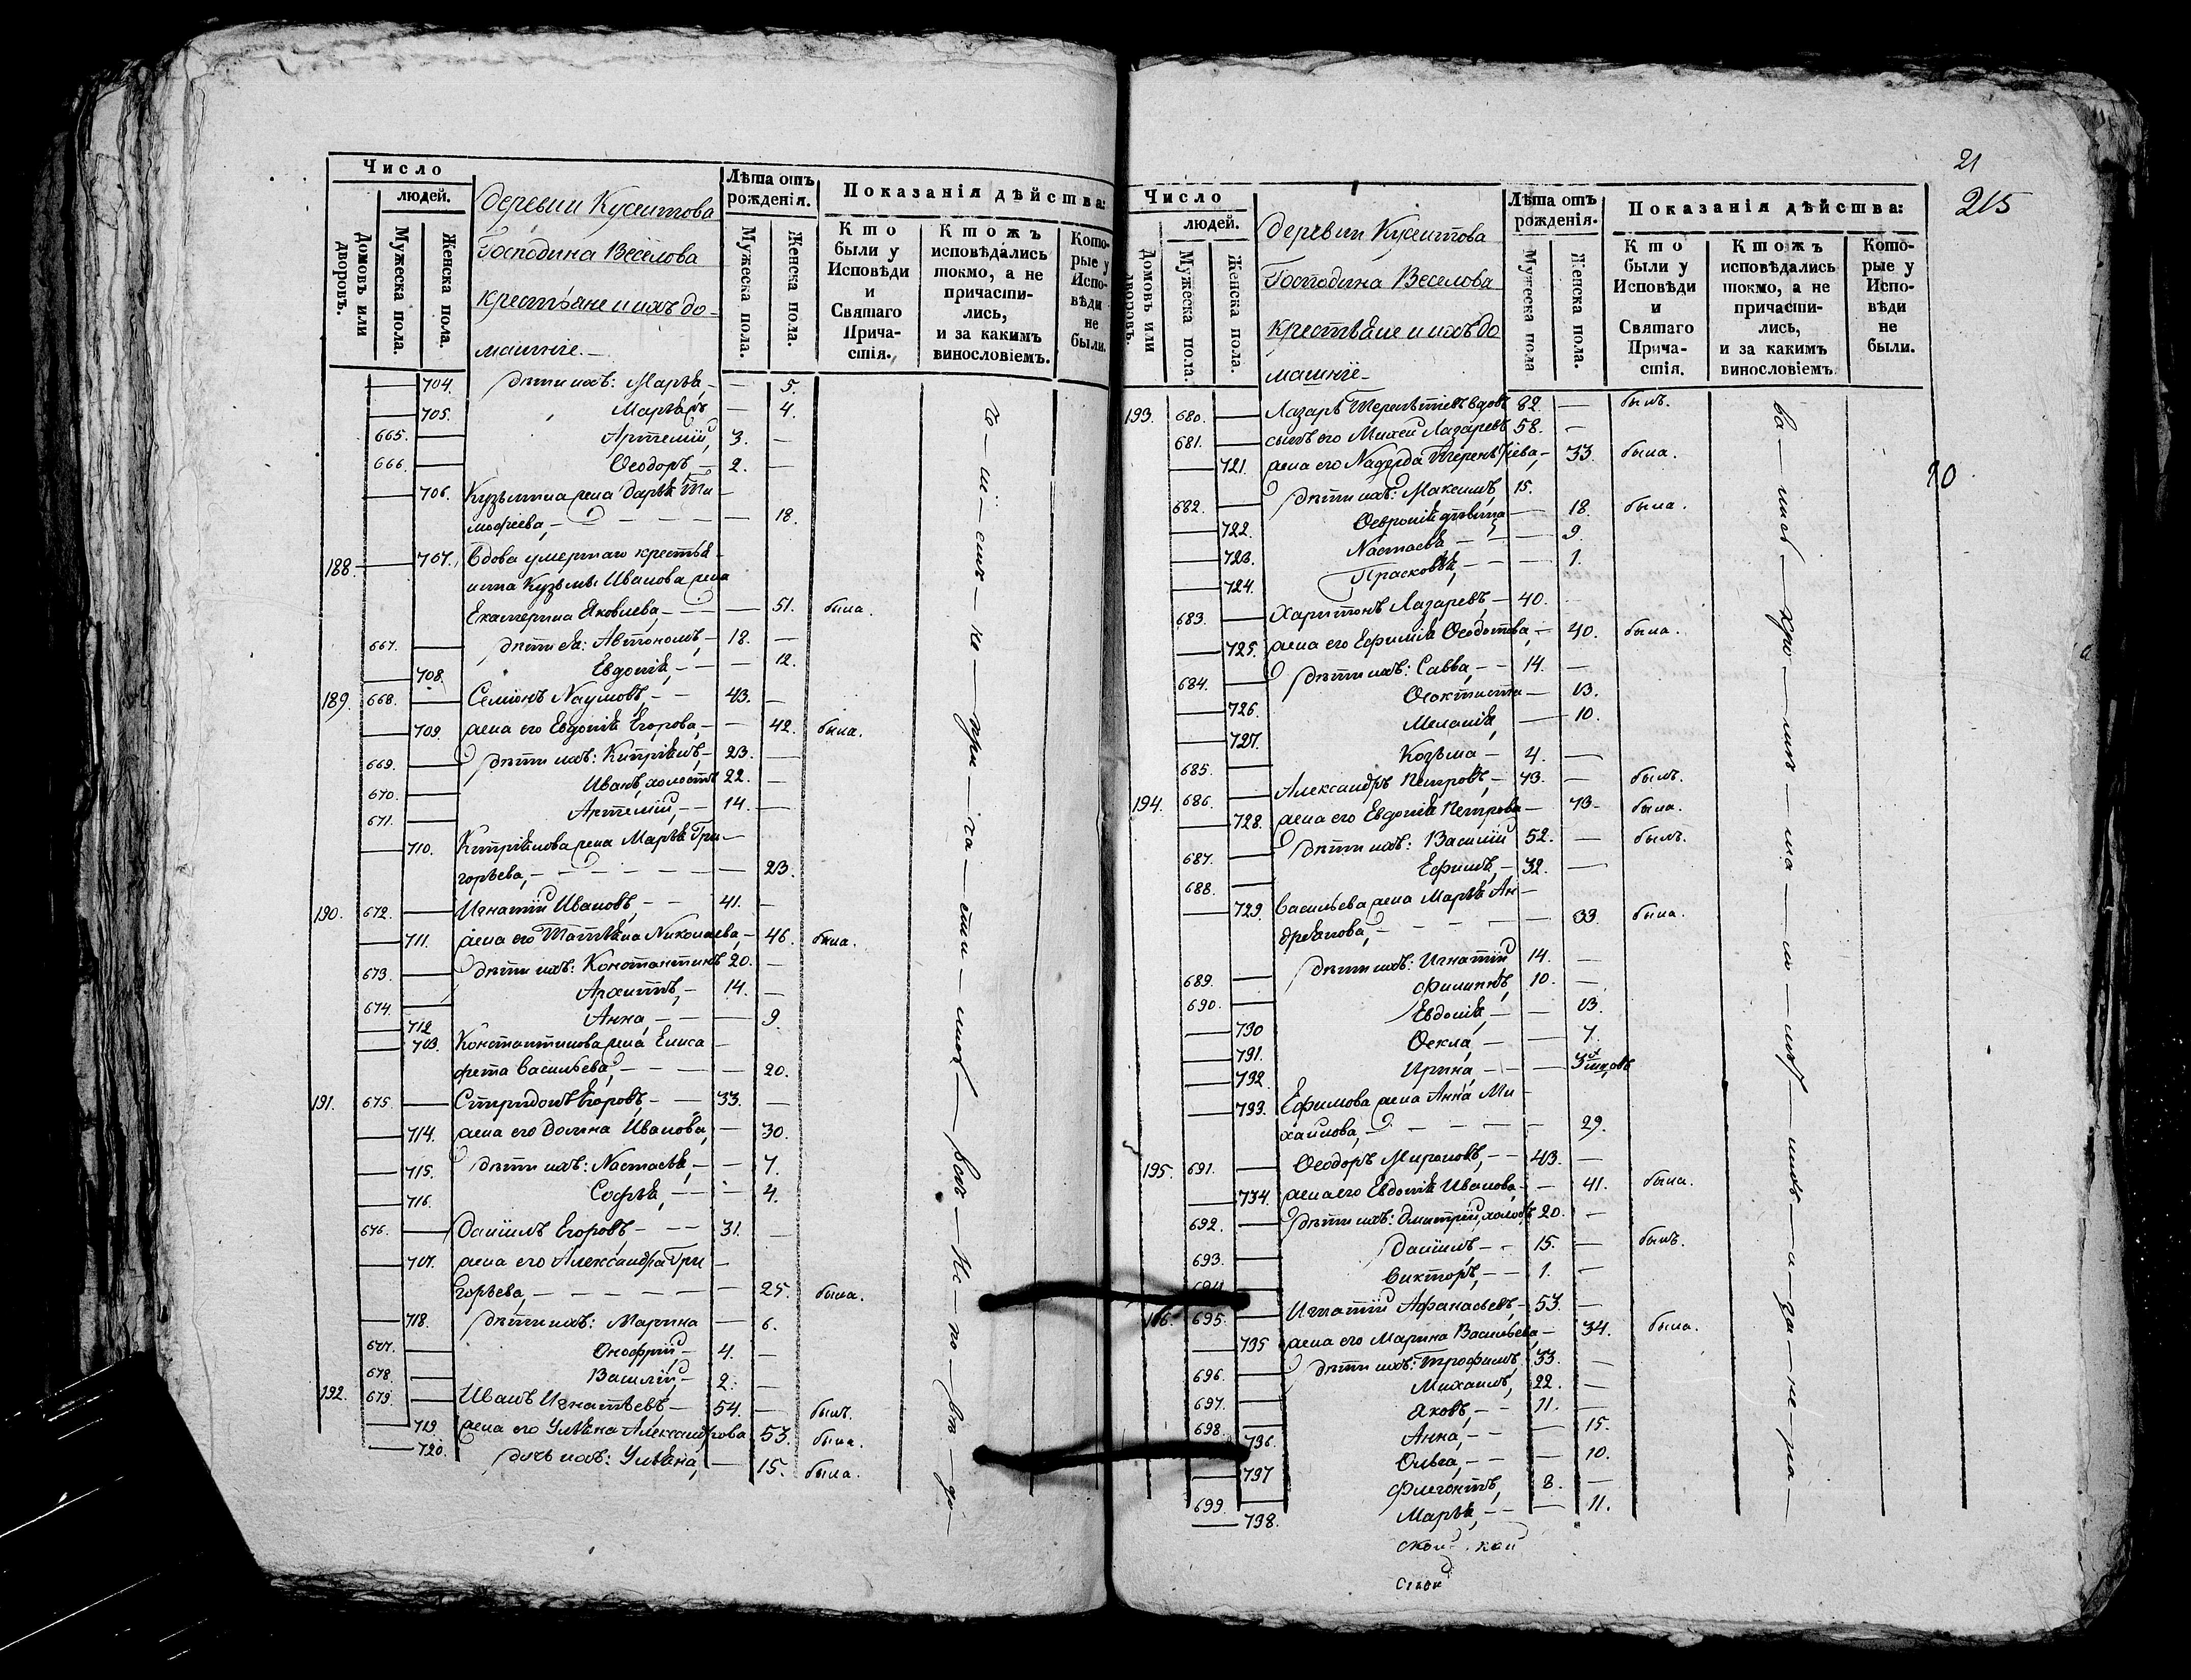 Число
людей.
Домовъ или дворовъ.
Мужеска пола.
Женска пола.
деревни Кусеитова
Господина Веселова
крестьяне и ихъ до-
машніе.-
Лѣта отъ рожденія.
Мужеска пола.
Женска пола.
Показанія дѣйства:
Кто были у Исповѣди и Святаго Прича-стія.
Ктожъ исповѣдались токмо, а не причасти-лись, и за какимъ винословіемъ.
Кото-рые у Испо-вѣди не были.
704. дѣти ихъ: Марья, — 5.
705. — 4.
665. Артемій, 3. —
666. Ѳеодоръ, — 2. —
706. Кузьмина жена Дарья Ти-
мофеева, — 18.
188. 707. Вдова умершаго крестья-
нина Кузьмы Иванова жена
Екатерина Яковлева, — 51. была.
667. дѣти ея: Автономъ, — 18. —
708. Евдокія, — 12.
189. 668. Семіонъ Наумовъ, — 43. —
709. жена его Евдокія Егорова, — 42. была.
669. дѣти ихъ: Кипріянъ, — 23. —
670. Иванъ, холостъ 22. —
671. Артемій, — 14. —
710. Кипріянова жена Марья Гри-
горьева, — 23.
190. 672. Игнатій Ивановъ, — 41. —
711. жена его Татьяна Николаева, — 46. была.
673. дѣти ихъ: Константинъ 20. —
674. Архипъ, — 14. —
712 Анна, — 9.
713. Константинова жена Елиса-
фета Васильева, — 20.
191. 675. Спиридонъ Егоровъ, — 33. —
714. жена его Домна Иванова, — 30.
715. дѣти ихъ: Настасья, — 7.
716. Софья, — 4.
676. Даниилъ Егоровъ, — 31. —
717. жена его Александра Гри-
горьева, — 25. была.
718. дѣти ихъ: Марина — 6.
677. Онофрій — 4. —
678. Василій, — 2. —
192. 679. Иванъ Игнатьевъ — 54. — былъ.
719. жена его Ульяна Александрова 53. была.
720. дочь ихъ: Ульяна, — 15. была.
21
215
Число
людей.
Домовъ или дворовъ.
Мужеска пола.
Женска пола.
деревни Кусеитова
Господина Веселова
крестьяне и ихъ до
машніе-
Лѣта отъ рожденія.
Мужеска пола
Женска пола.
Показанія дѣйства:
Кто были у Исповѣди и Святаго Прича-стія.
Ктожъ исповѣдались токмо, а не причасти-лись, и за какимъ винословіемъ.
Кото-рые у Испо-вѣди не были.
193. 680. Лазарь Терентіевъ вдовъ 82. — былъ.
681. сынъ его Михей Лазаревъ 58. —
721. жена его Надежда Терентіева, — 33. была.
682. дѣти ихъ: Максимъ, 15.
722. Февронія дѣвица — 18. была.
723. Настасья — 9.
724. Прасковья, — 1.
683. Харитонъ Лазаревъ, — 40.
725. жена его Ефимія Ѳеодотова, — 40. была.
684. дѣти ихъ: Савва, — 14. —
726. Ѳеоктиста — 13.
727. Меланія, — 10.
685. Козьма — 4. —
194. 686. Александръ Петровъ, — 73. — былъ.
728. жена его Евдокія Петрова — 73. была.
687. дѣти ихъ: Василій 52. — былъ.
688. Ефимъ, — 32. —
729. Васильева жена Марья Ан-
дреянова, — 33. была.
689. дѣти ихъ: Игнатій 14. —
690. Филиппъ, 10. —
730 Евдокія, — 13.
731. Ѳекла, — 7.
732 Ирина, —
733. Ефимова жена Анна Ми-
хаилова, — 29.
195. 691. Ѳеодоръ Мироновъ, — 43. —
734. жена его Евдокія Иванова, — 41. была.
692. дѣти ихъ: Дмитрій, холостъ 20. —
693. Даниилъ — 15. — былъ.
694. Викторъ, — 1. —
196. 695. Игнатій Афанасьевъ, — 53. —
735 жена его Марина Васильева, — 34. была.
696. дѣти ихъ: Трофимъ, 33. —
697. Михаилъ, 22. —
698. Яковъ, — 11. —
736. Анна, — 15.
737 Ольга, — 10.
699. Флегонтъ, 8. —
738. Марья, — 11.